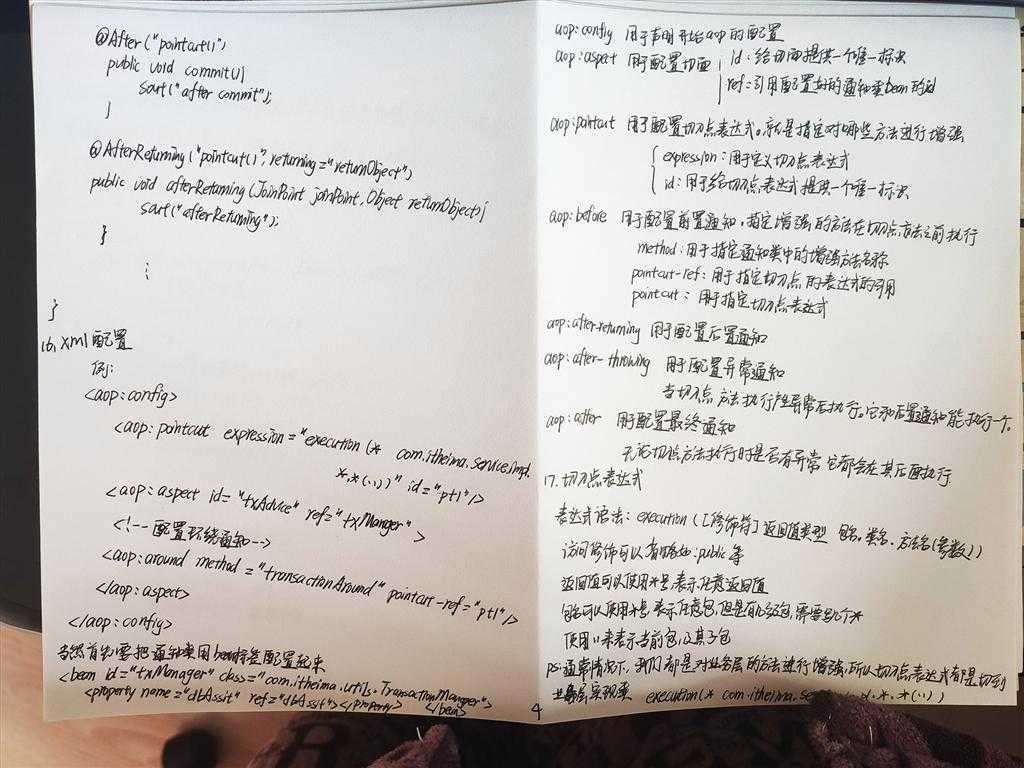 @After("pointcut()")
public void commit(){
sout("after commit");
}
@AfterReturning("pointcut()", returning="returnObject")
public void afterReturning(JoinPoint joinPoint, Object returnObject){
sout("afterReturning");
}
⋮
}
16. xml配置
例:
<aop:config>
<aop:pointcut expression="execution(* com.itheima.service.impl.
*.*(..))" id="pt1"/>
<aop:aspect id="txAdvice" ref="txManger">
<!-- 配置环绕通知-->
<aop:around method="transactionAround" pointcut-ref="pt1"/>
</aop:aspect>
</aop:config>
当然首先需要把通知类用bean标签配置起来
<bean id="txManager" class="com.itheima.utils.TransactionManager">
<property name="dbAssit" ref="dbAssit"></property> </bean>
4
aop:config 用于声明开始aop的配置
aop:aspect 用于配置切面 id:给切面提供一个唯一标识
ref:引用配置好的通知类bean的id
aop:pointcut 用于配置切入点表达式。就是指定对哪些方法进行增强
expression:用于定义切入点表达式
id:用于给切入点表达式提供一个唯一标识
aop:before 用于配置前置通知,指定增强的方法在切入点方法之前执行
method:用于指定通知类中的增强方法名称
pointcut-ref:用于指定切入点的表达式的引用
pointcut:用于指定切入点表达式
aop:after-returning 用于配置后置通知
aop:after-throwing 用于配置异常通知
当切入点方法执行产生异常后执行。它和后置通知只能执行一个。
aop:after 用于配置最终通知
无论切入点方法执行时是否有异常,它都会在其后面执行
17. 切入点表达式
表达式语法:execution([修饰符] 返回值类型 包名.类名.方法名(参数))
访问修饰可以省略如:public等
返回值可以使用*号,表示任意返回值
包名可以使用*号,表示任意包,但是有几级包,需要写几个*
使用..来表示当前包,及其子包
ps:通常情况下,我们都是对业务层的方法进行增强,所以切入点表达式都是切到
业务层实现类 execution(* com.itheima. .*.*(..))